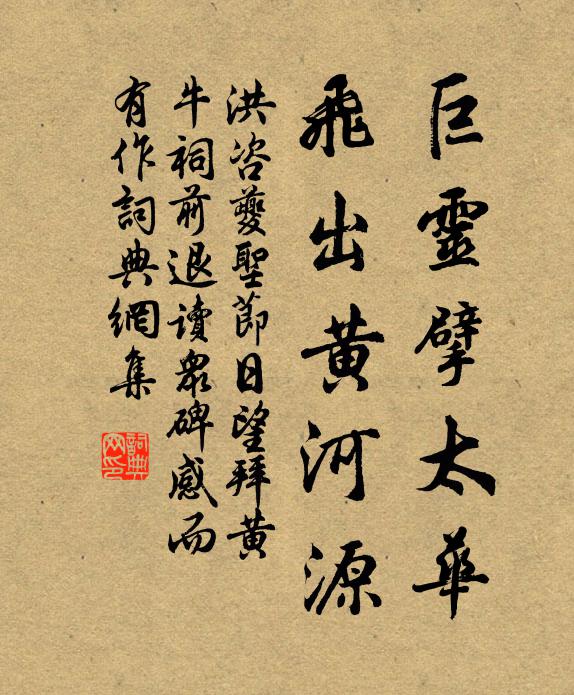 巨靈擘太華
飛出黃河源
洪咨夔聖節日望拜黃
牛祠前退讀衆碑感而
有作詞典網集
詞典
网印